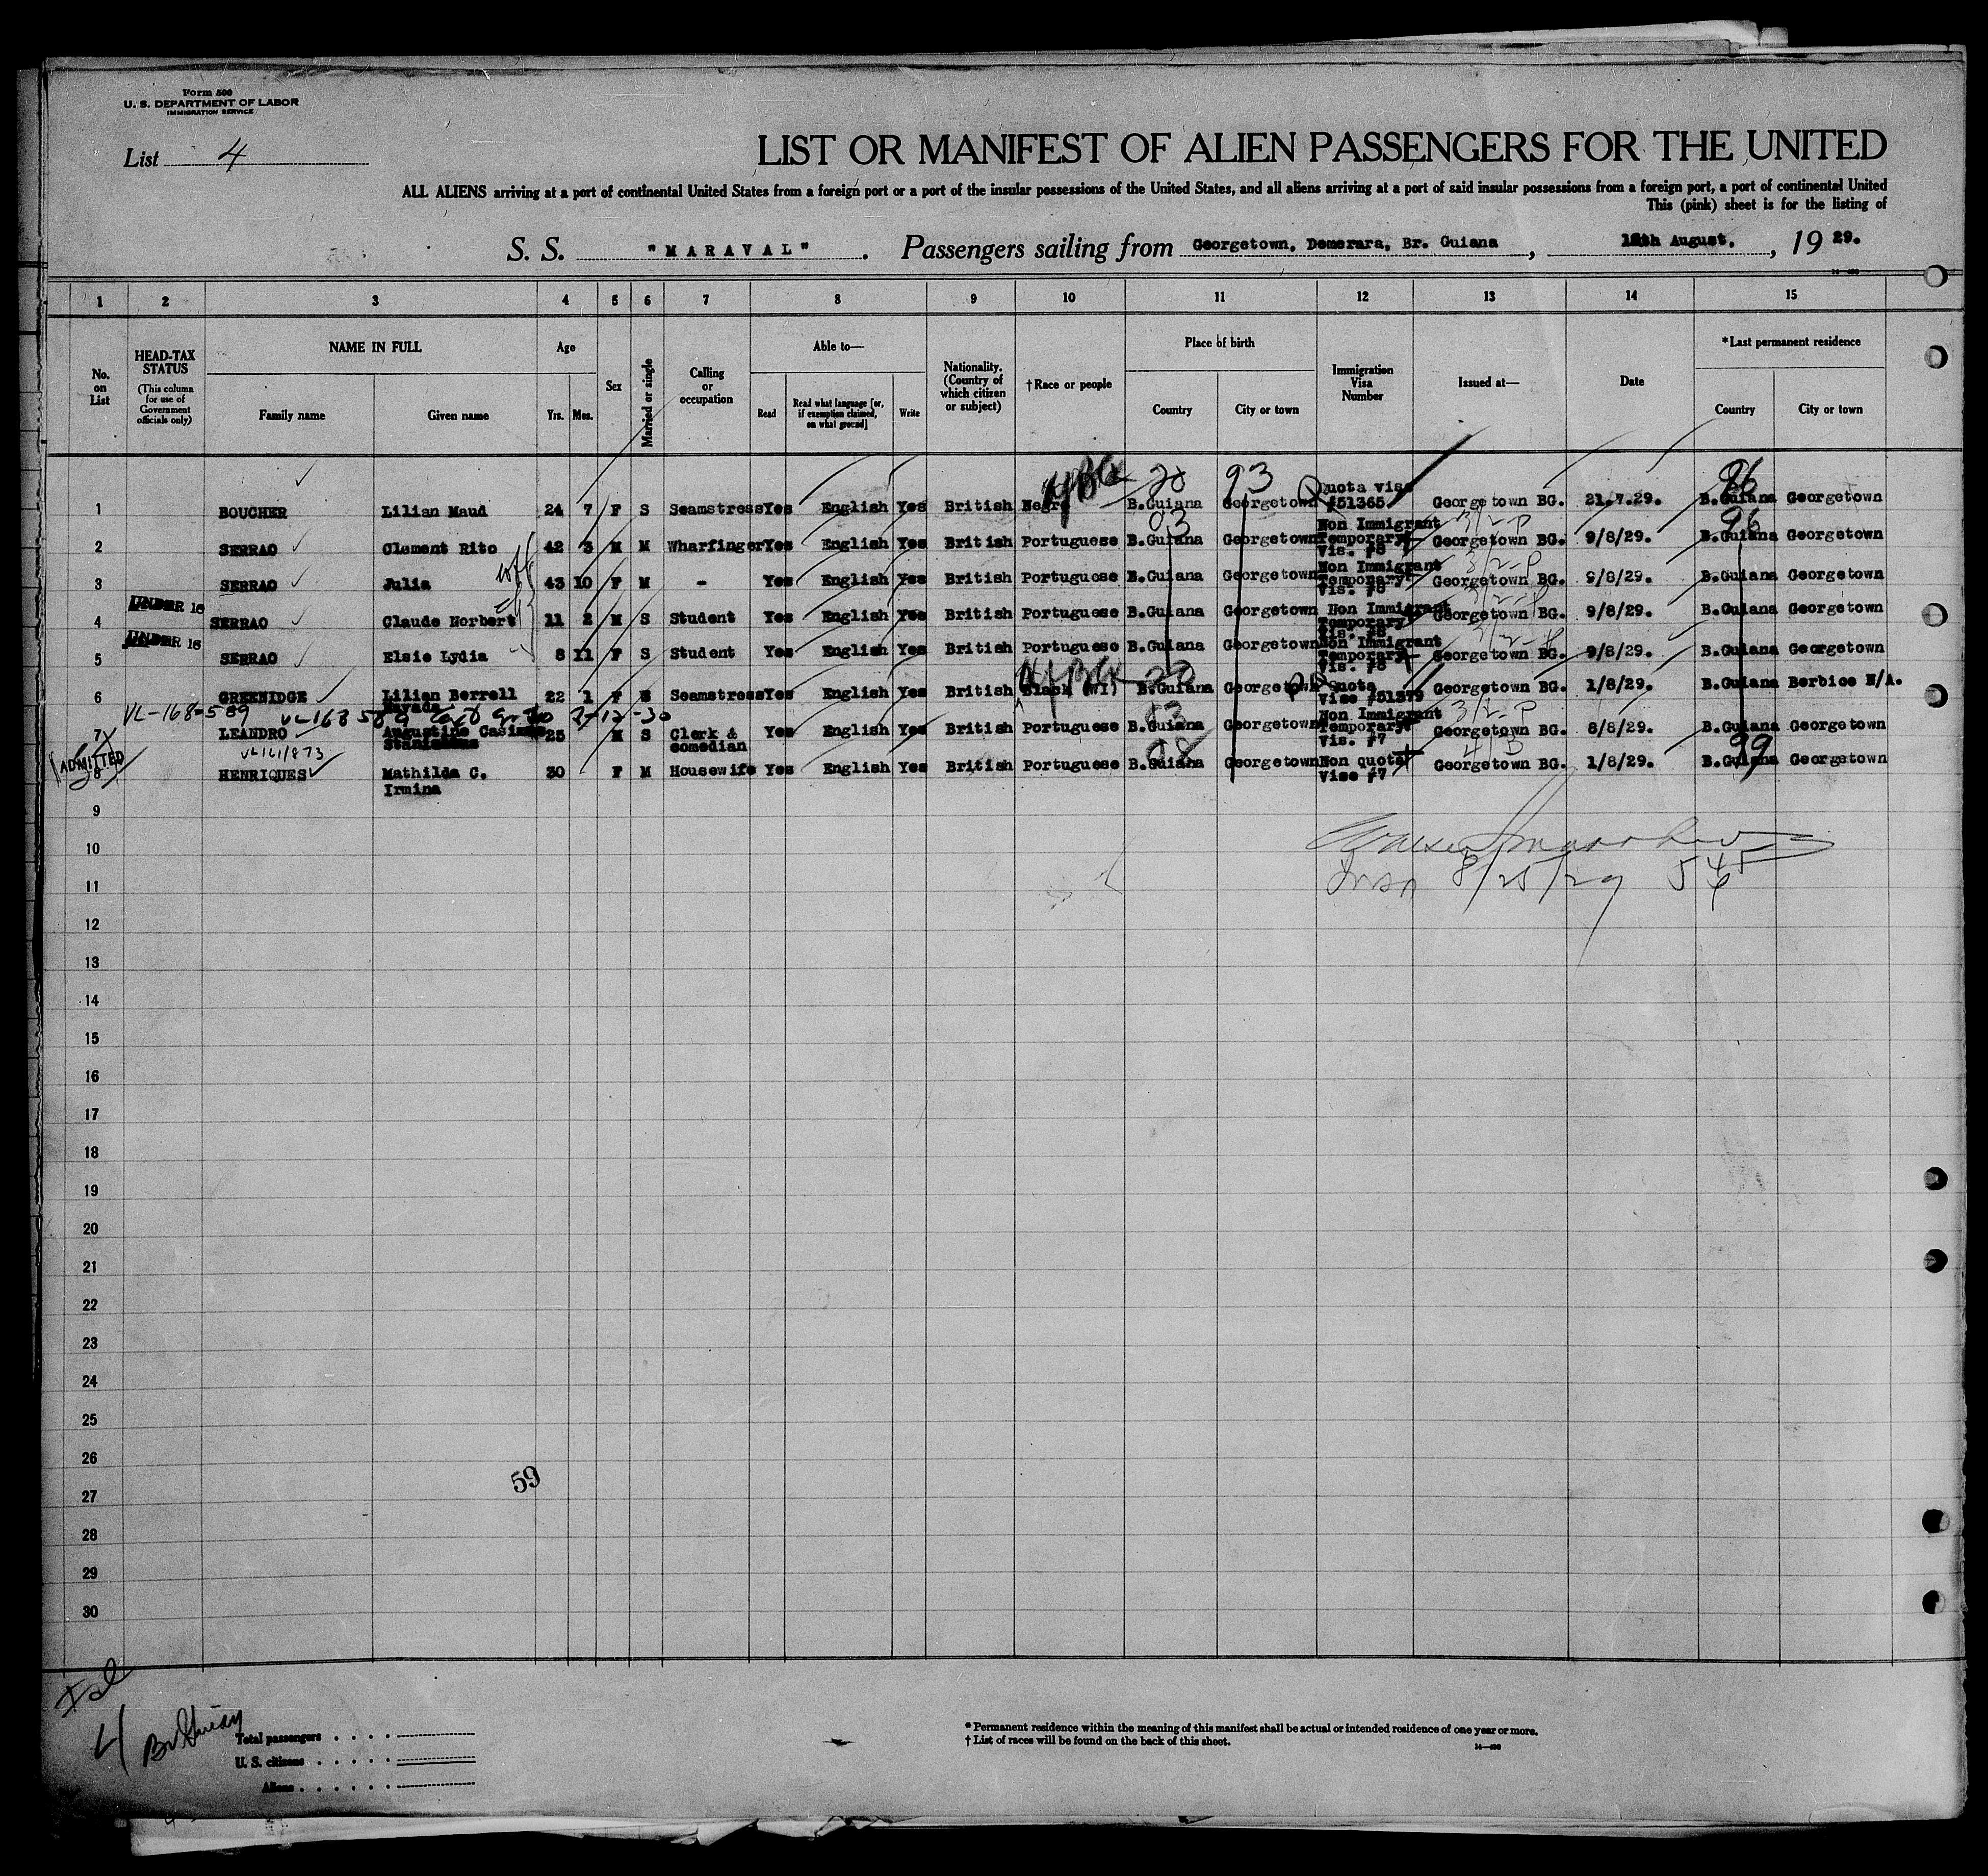 Form 500
U. S. DEPARTMENT OF LABOR
IMMIGRATION SERVICE
List 4
LIST OR MANIFEST OF ALIEN PASSENGERS FOR THE UNITED
ALL ALIENS arriving at a port of continental United States from a foreign port or a port of the insular possessions of the United States, and all aliens arriving at a port of said insular possessions from a foreign port, a port of continental United
This (pink) sheet is for the listing of
S. S. "MARAVAL". Passengers sailing from Georgetown, Demerara, Br. Guiana, August, , 19 29.
1 2 3 4 5 6 7 8 9 10 11 12 13 14 15
No. on List
HEAD-TAX STATUS (This column for use of Government officials only)
NAME IN FULL
Family name
Given name
Age
Yrs. Mos.
Sex
Married or single
Calling or occupation
Able to—
Read
Read what language [or, if exemption claimed, on what ground]
Write
Nationality. (Country of which citizen or subject)
†Race or people
Place of birth
Country
City or town
Immigration Visa Number
Issued at—
Date
*Last permanent residence
Country
City or town
20 93 96
1 BOUCHER Lilian Maud 24 7 F S Seamstress Yes English Yes British Negro B.Guiana Georgetown Quota vise #51365 Georgetown BG. 21.7.29. B.Guiana Georgetown
03 3/2-P 96
2 SERRAO Clement Rito 42 3 M M Wharfinger Yes English Yes British Portuguese B.Guiana Georgetown Non Immigrant Temporary Vis. #8 Georgetown BG. 9/8/29. B.Guiana Georgetown
3/2-P
3 SERRAO Julia 43 10 F M - Yes English Yes British Portuguese B.Guiana Georgetown Non Immigrant Temporary Vis. #8 Georgetown BG. 9/8/29. B.Guiana Georgetown
UNDER 16
4 SERRAO Claude Norbert 11 2 M S Student Yes English Yes British Portuguese B.Guiana Georgetown Non Immigrant Temporary Vis. #8 Georgetown BG. 9/8/29. B.Guiana Georgetown
UNDER 16
5 SERRAO Elsie Lydia 8 11 F S Student Yes English Yes British Portuguese B.Guiana Georgetown Non Immigrant Temporary Vis. #8 Georgetown BG. 9/8/29. B.Guiana Georgetown
20
6 GREENIDGE Lilian Berrell Nayada 22 1 F S Seamstress Yes English Yes British Black (WI) B.Guiana Georgetown Quota Vise #51379 Georgetown BG. 1/8/29. B.Guiana Berbice N/A.
VL-168-589 VL 168 589 2-12-30 3/2-P
7 LEANDRO Augustine Casimir Stanislaus 25 M S Clerk & comedian Yes English Yes British Portuguese B.Guiana Georgetown Non Immigrant Temporary Vis. #7 Georgetown BG. 8/8/29. B.Guiana Georgetown
ADMITTED 99
8 HENRIQUES Mathilda C. Irmina 30 F M Housewife Yes English Yes British Portuguese B.Guiana Georgetown Non quota Vise #7 Georgetown BG. 1/8/29. B.Guiana Georgetown
9
10
11 8/25/29
12
13
14
15
16
17
18
19
20
21
22
23
24
25
26
59
27
28
29
30
4
Total passengers
U. S. citizens
Aliens
* Permanent residence within the meaning of this manifest shall be actual or intended residence of one year or more.
† List of races will be found on the back of this sheet.